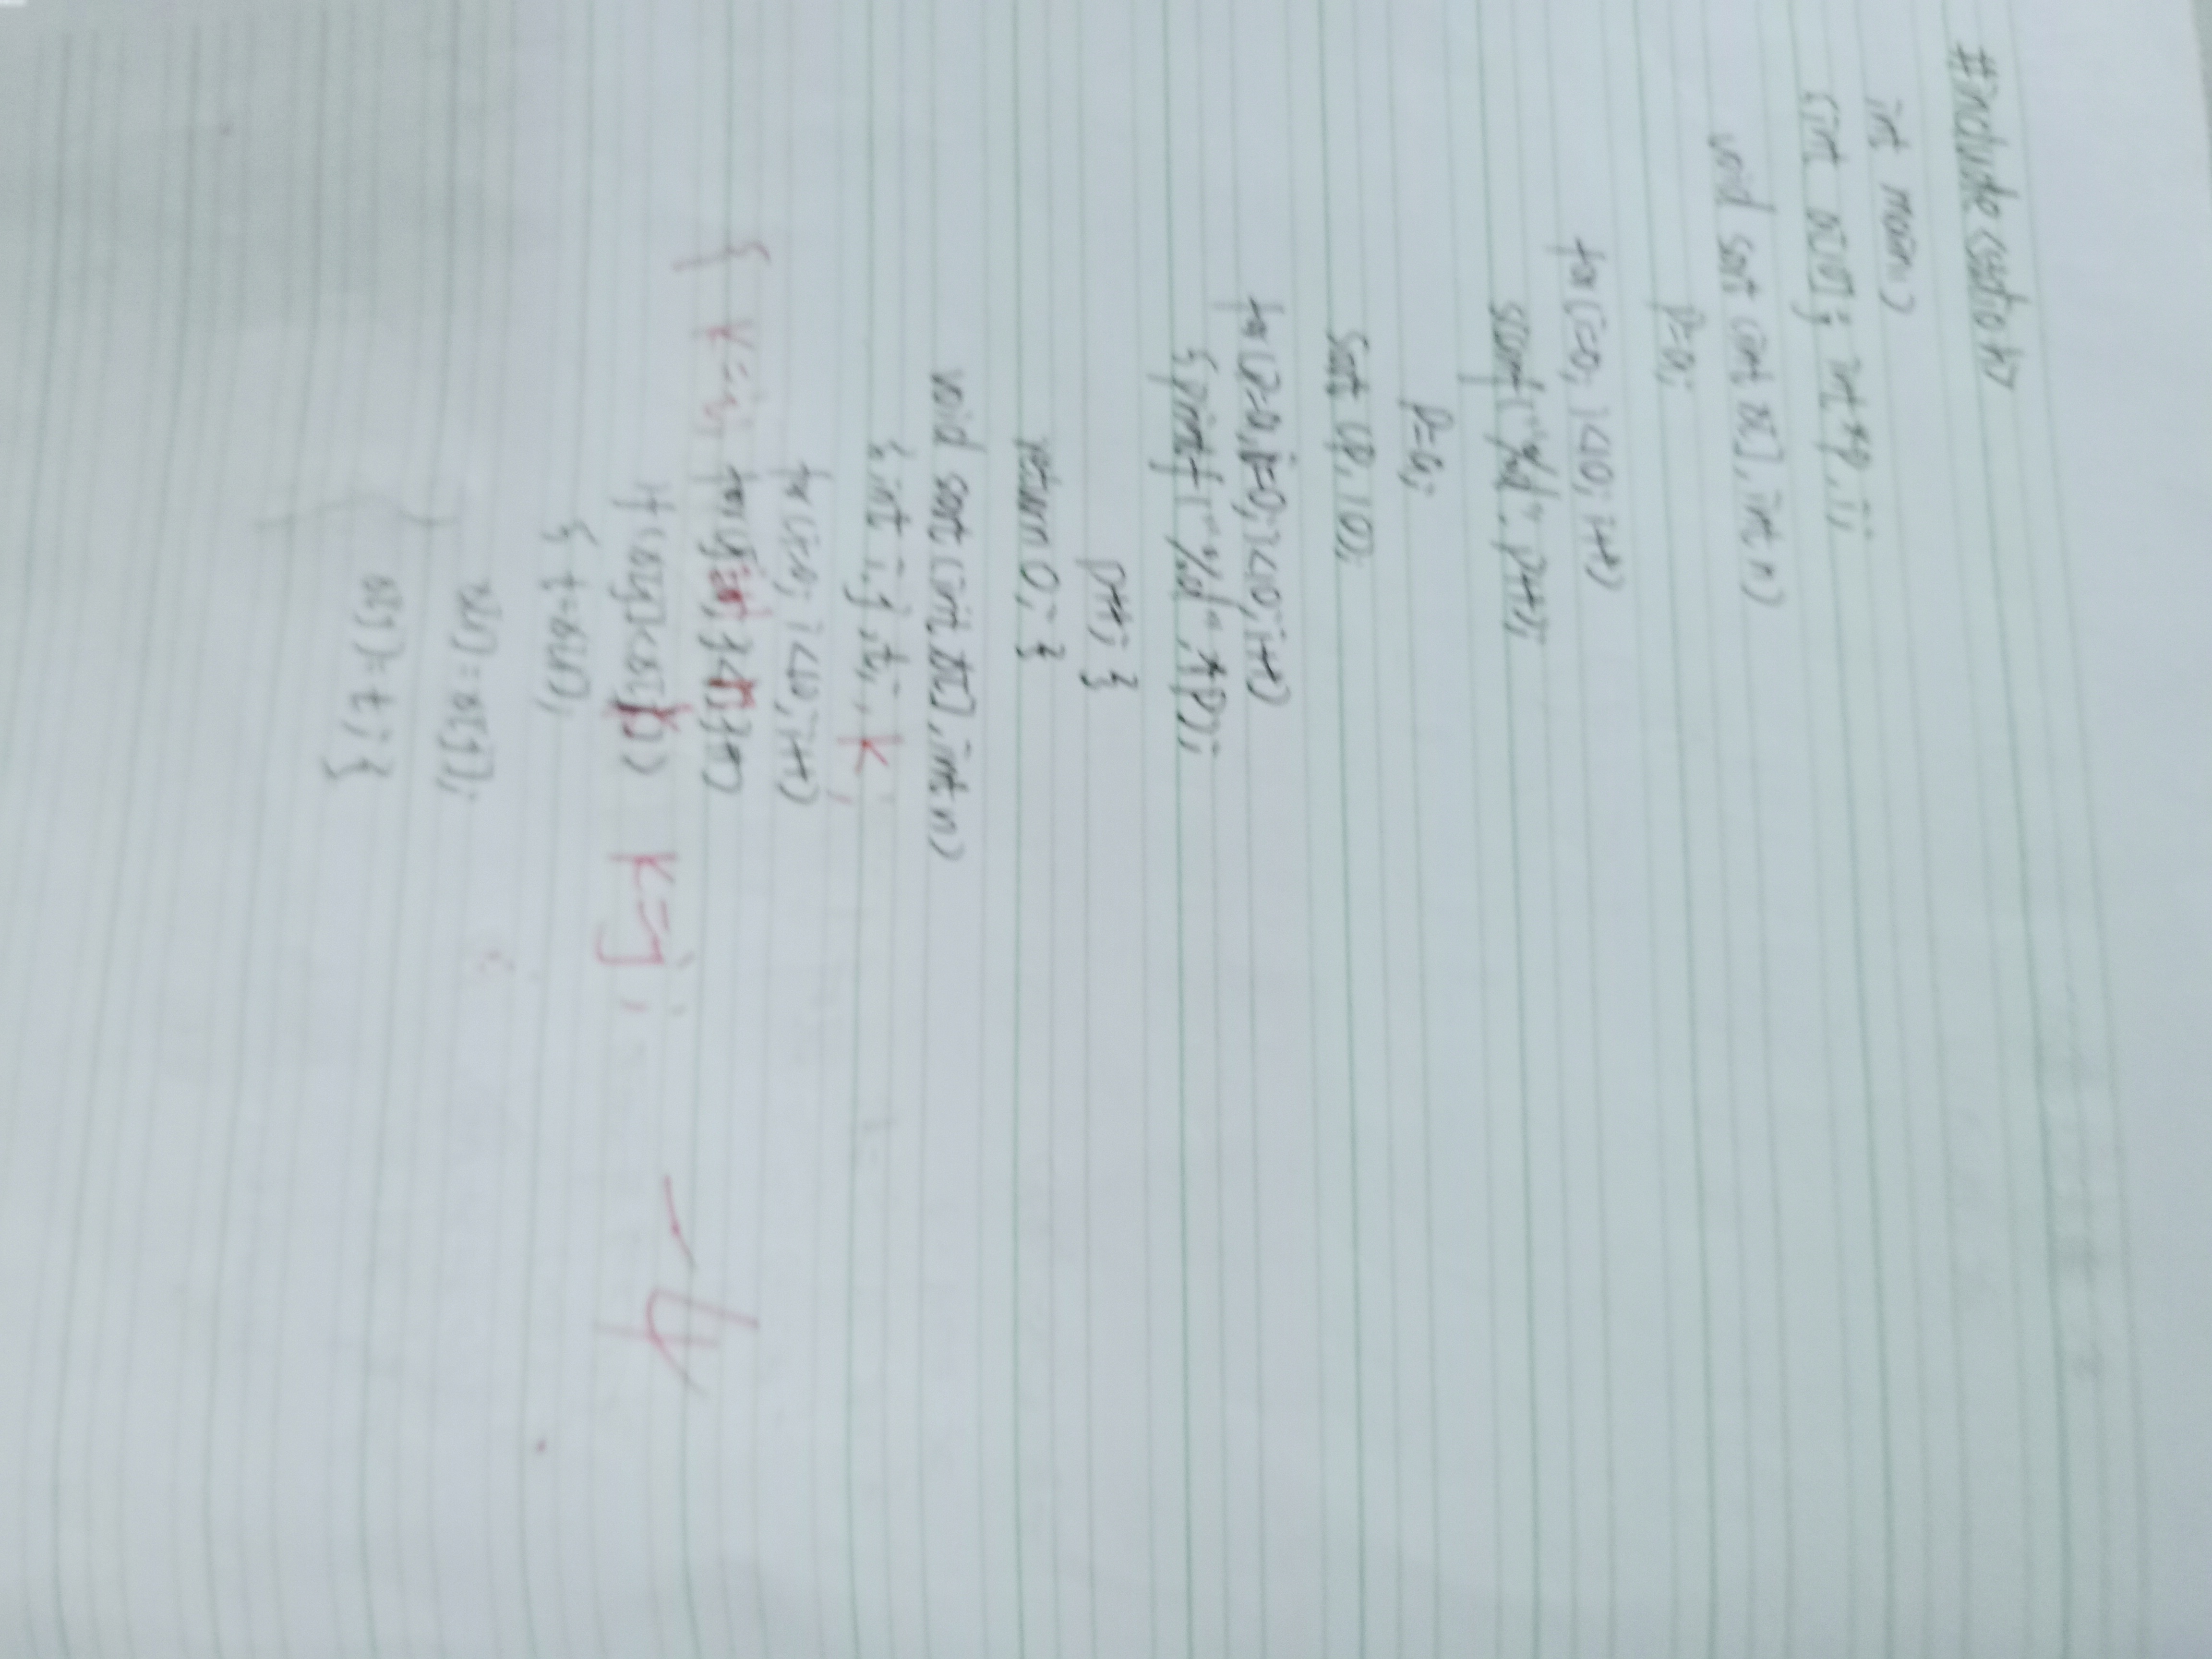 #include<stdio.h>
int main()
{int a[10]; int *p,i;
void sort(int a[],int n)
p=a;
for(i=0; i<10; i++)
scanf("%d",p++);
p=a;
sort(p,10);
for(p=a,i=0;i<10;i++)
{printf("%d",*p);
p++; }
return 0; }
void sort(int a[],int n)
{int i,j,t; ,k;
for(i=0; i<10; i++)
{ k=i; for(j= ;j< ;j++)
if(a[j]<a[k]) k=j;
{ t=a[i];
a[i]=a[j];
a[j]=t; }